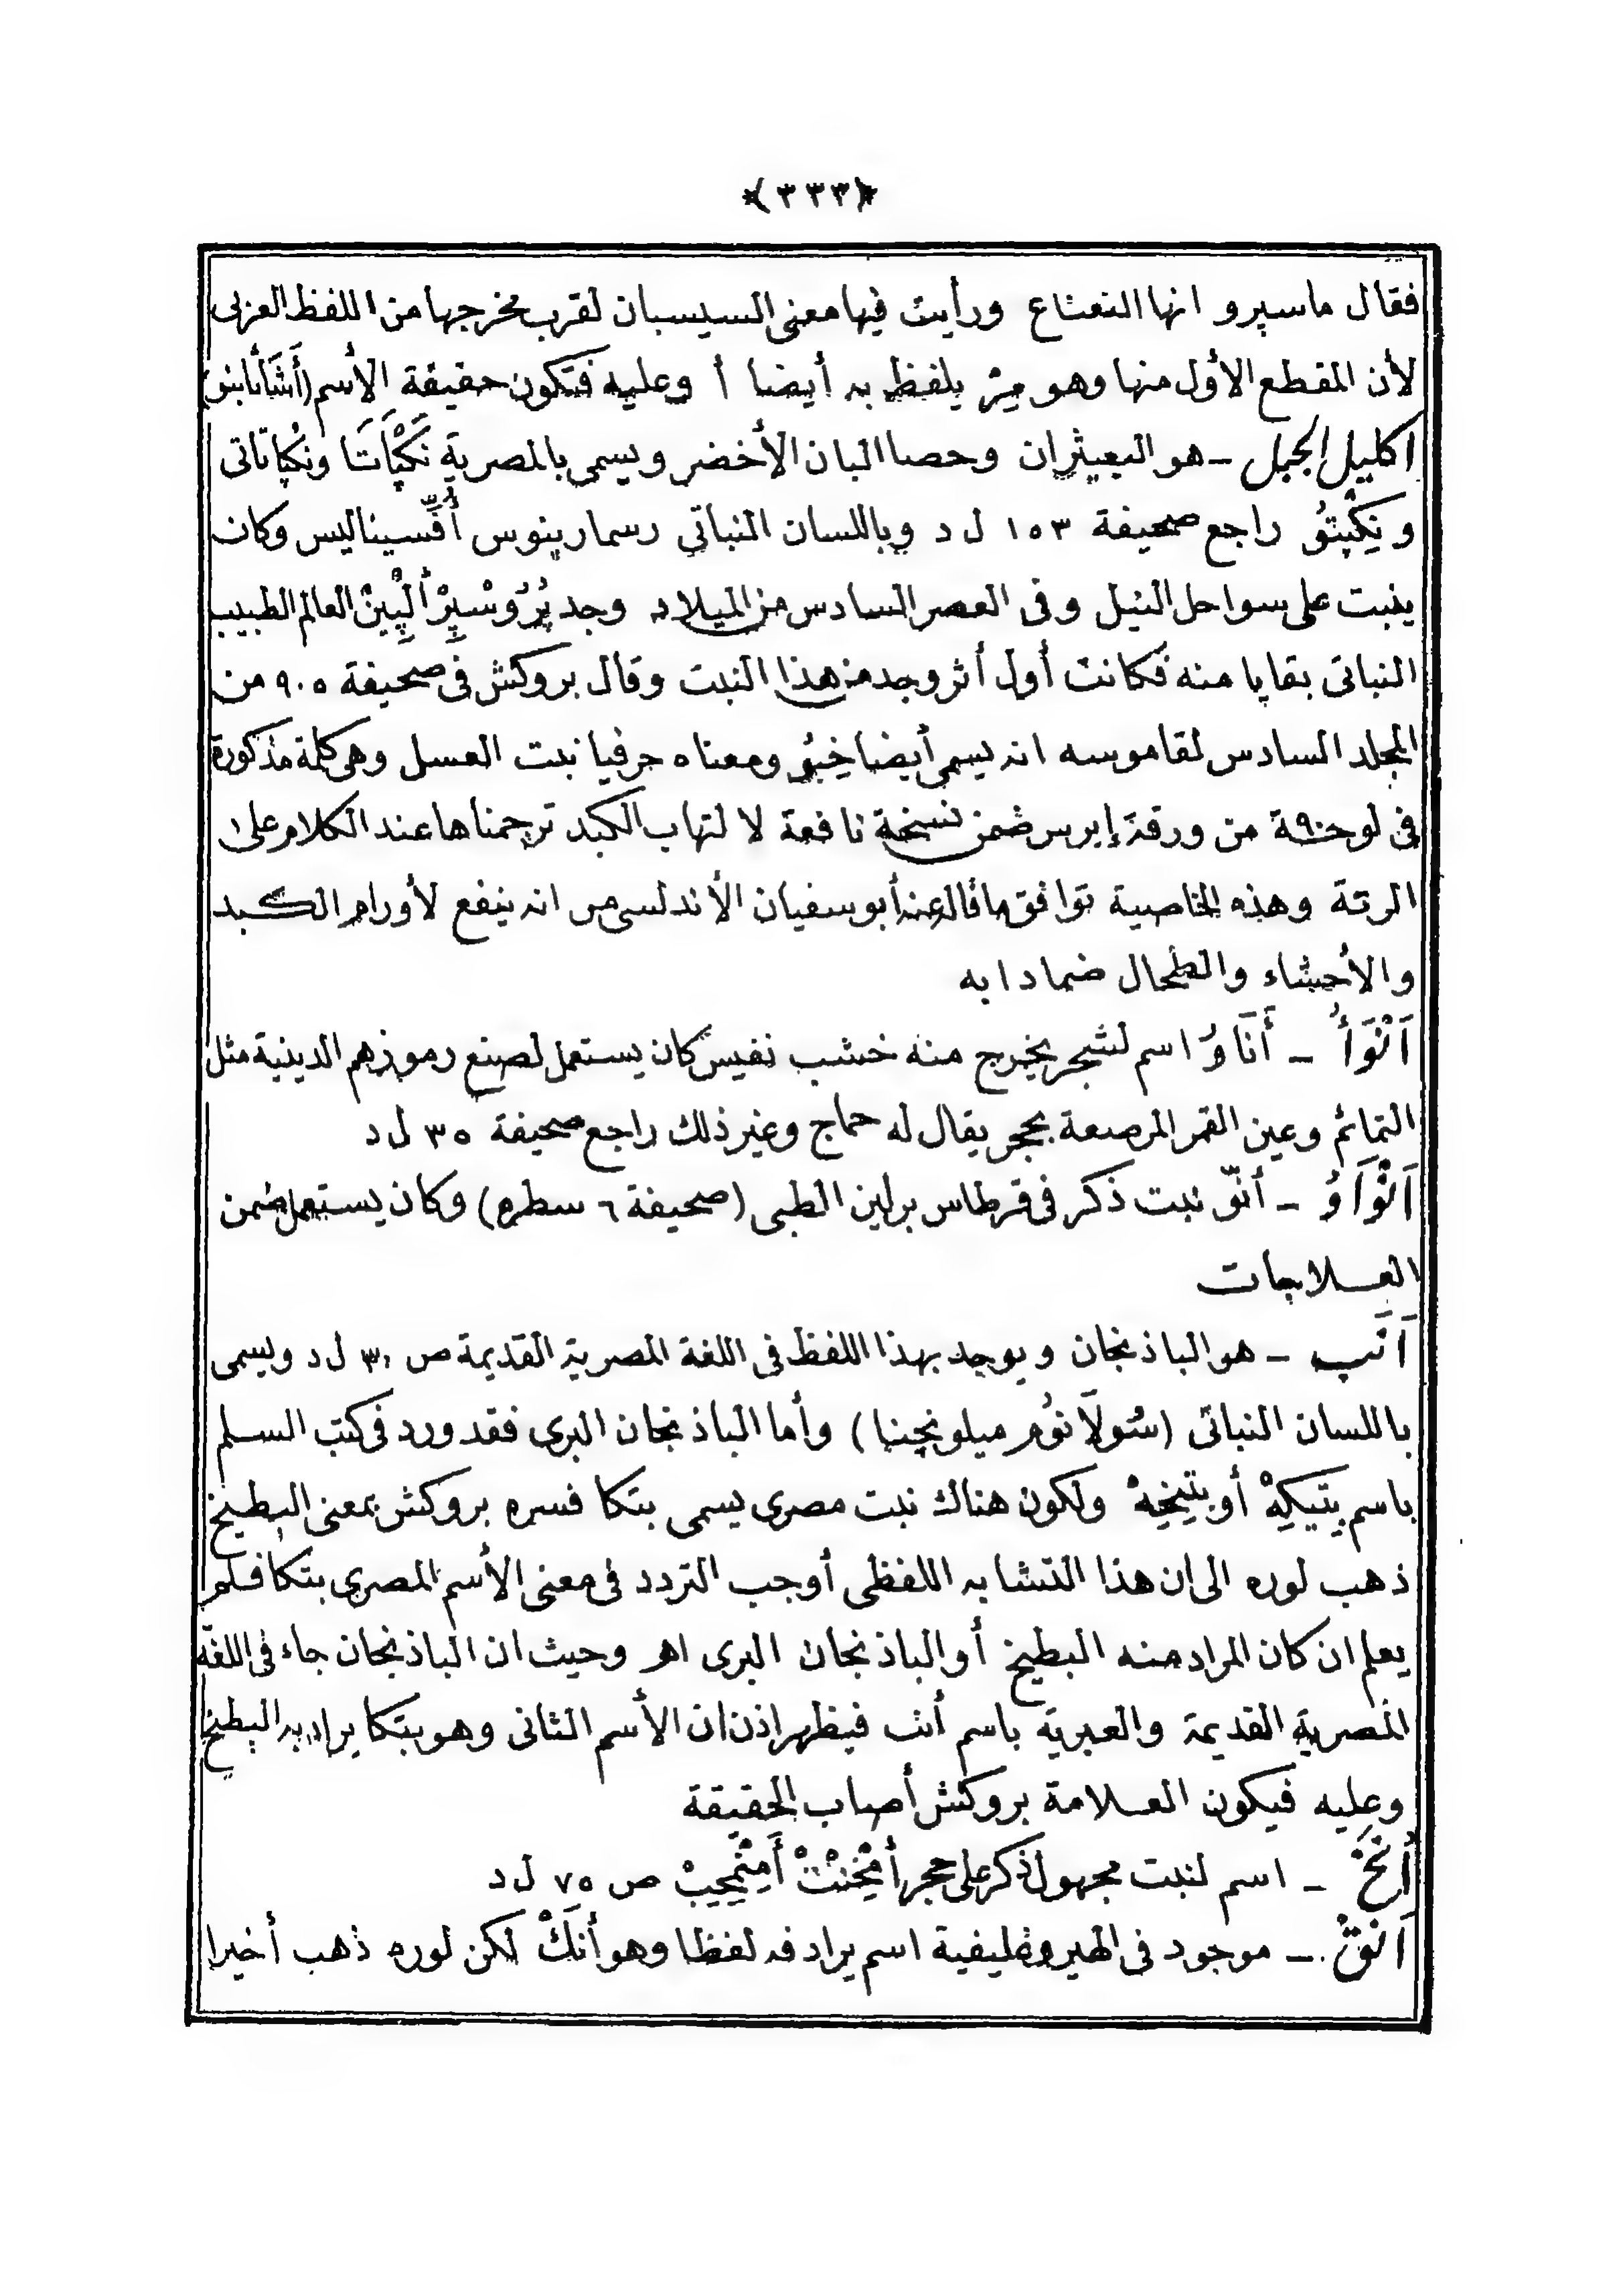 ﴿٣٣٣﴾
فقال ماسپرو انها النعناع ورأيت فيها معنى السيسبان لقرب مخرجها من اللفظ العربى
لأن المقطع الأول منها وهو مِرْ يلفظ به أيضا أ وعليه فتكون حقيقة الأسم
اكليل الجبل ــ هو البعيثران وحصا البان الأخضر ويسمى بالمصرية نَكْپَاتَا ونكپاتاتى
و نِكْپِتُو راجع صحيفة ١٥٣ ل د وباللسان النباتى رسمارينوس أُفِّسيناليس وكان
ينبت على سواحل النيل وفى العصر السادس من الميلاد وجد پْرُوسْپِرْ أَلْپِينْ العالم الطبيب
النباتى بقايا منه فكانت أول أثر وجد من هذا النبت وقال بروكش فى صحيفة ٩٠٥ من
المجلد السادس لقاموسه انه يسمى أيضا ومعناه حرفيا نبت العسل وهى كلمة مذكورة
فى لوحة ٩٠ من ورقة إيرس ضمن نسخة نافعة لالتهاب الكبد ترجمناها عند الكلام على
الرتة وهذه الخاصية توافق ما قاله عنه أبو سفيان الأندلسى من انه ينفع لأورام الكبد
والأحشاء والطحال ضمادا به
اَنْوَأُ ــ أَنَاوُ اسم لشجر يخرج منه خشب نفيس كان يستعمل لصنع رموزهم الدينية مثل
التمائم وعين القمر المرصعة بحجر يقال له حماج وغير ذلك راجع صحيفة ٣٥ ل د
اَنْوَاوُ ــ أنوّ نبت ذكر فى قرطاس برلين الطبى (صحيفة ٦ سطر٥) وكان يستعمل ضمن
العلاجات
اَنَب ــ هو الباذنجان ويوجد بهذا اللفظ فى اللغة المصرية القديمة ص ٣٠ ل د ويسمى
باللسان النباتى (سُولَانُوم ميلونجنا) وأما الباذنجان البرى فقد ورد فى كتب السلم
باسم بِتِيكِهْ أو بِتِيخِهْ ولكون هناك نبت مصرى يسمى بتكا فسره بروكش بمعنى البطيخ
ذهب لوره الى ان هذا التشابه اللفظى أوجب التردد فى معنى الأسم المصرى بتكا فلم
يعلم ان كان المراد منه البطيخ أو الباذنجان البرى اهـ وحيث ان الباذنجان جاء فى اللغة
المصرية القديمة والعبرية باسم أنب فيظهر اذن ان الأسم الثانى وهو بتكا يراد به البطيخ
وعليه فيكون العلامة بروكش أصاب الحقيقة
اُنْخَ ــ اسم لنبت مجهول ذكر على حجر أَمْنِمْحِيبْ ص ٧٥ ل د
اَنْوَقْ ــ موجود فى الهيروغليفية اسم يرادفه لفظا وهو أَنَكْ لكن لوره ذهب أخيرا